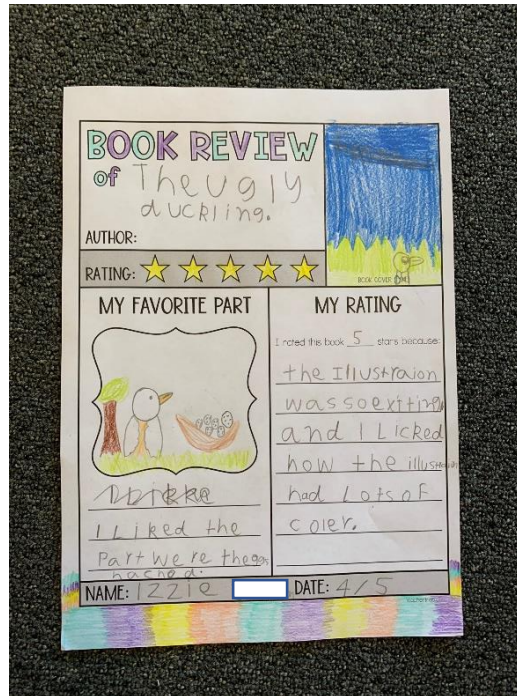 BOOK REVIEW
of The Ugly
duckling.
AUTHOR:
RATING:
BOOK COVER
MY FAVORITE PART
I Liked the
Part we re the
hached.
MY RATING
I rated this book 5 stars because:
the Illustraion
was so exiting
and I Licked
how the
had Lots of
coler.
NAME: Izzie DATE: 4/5